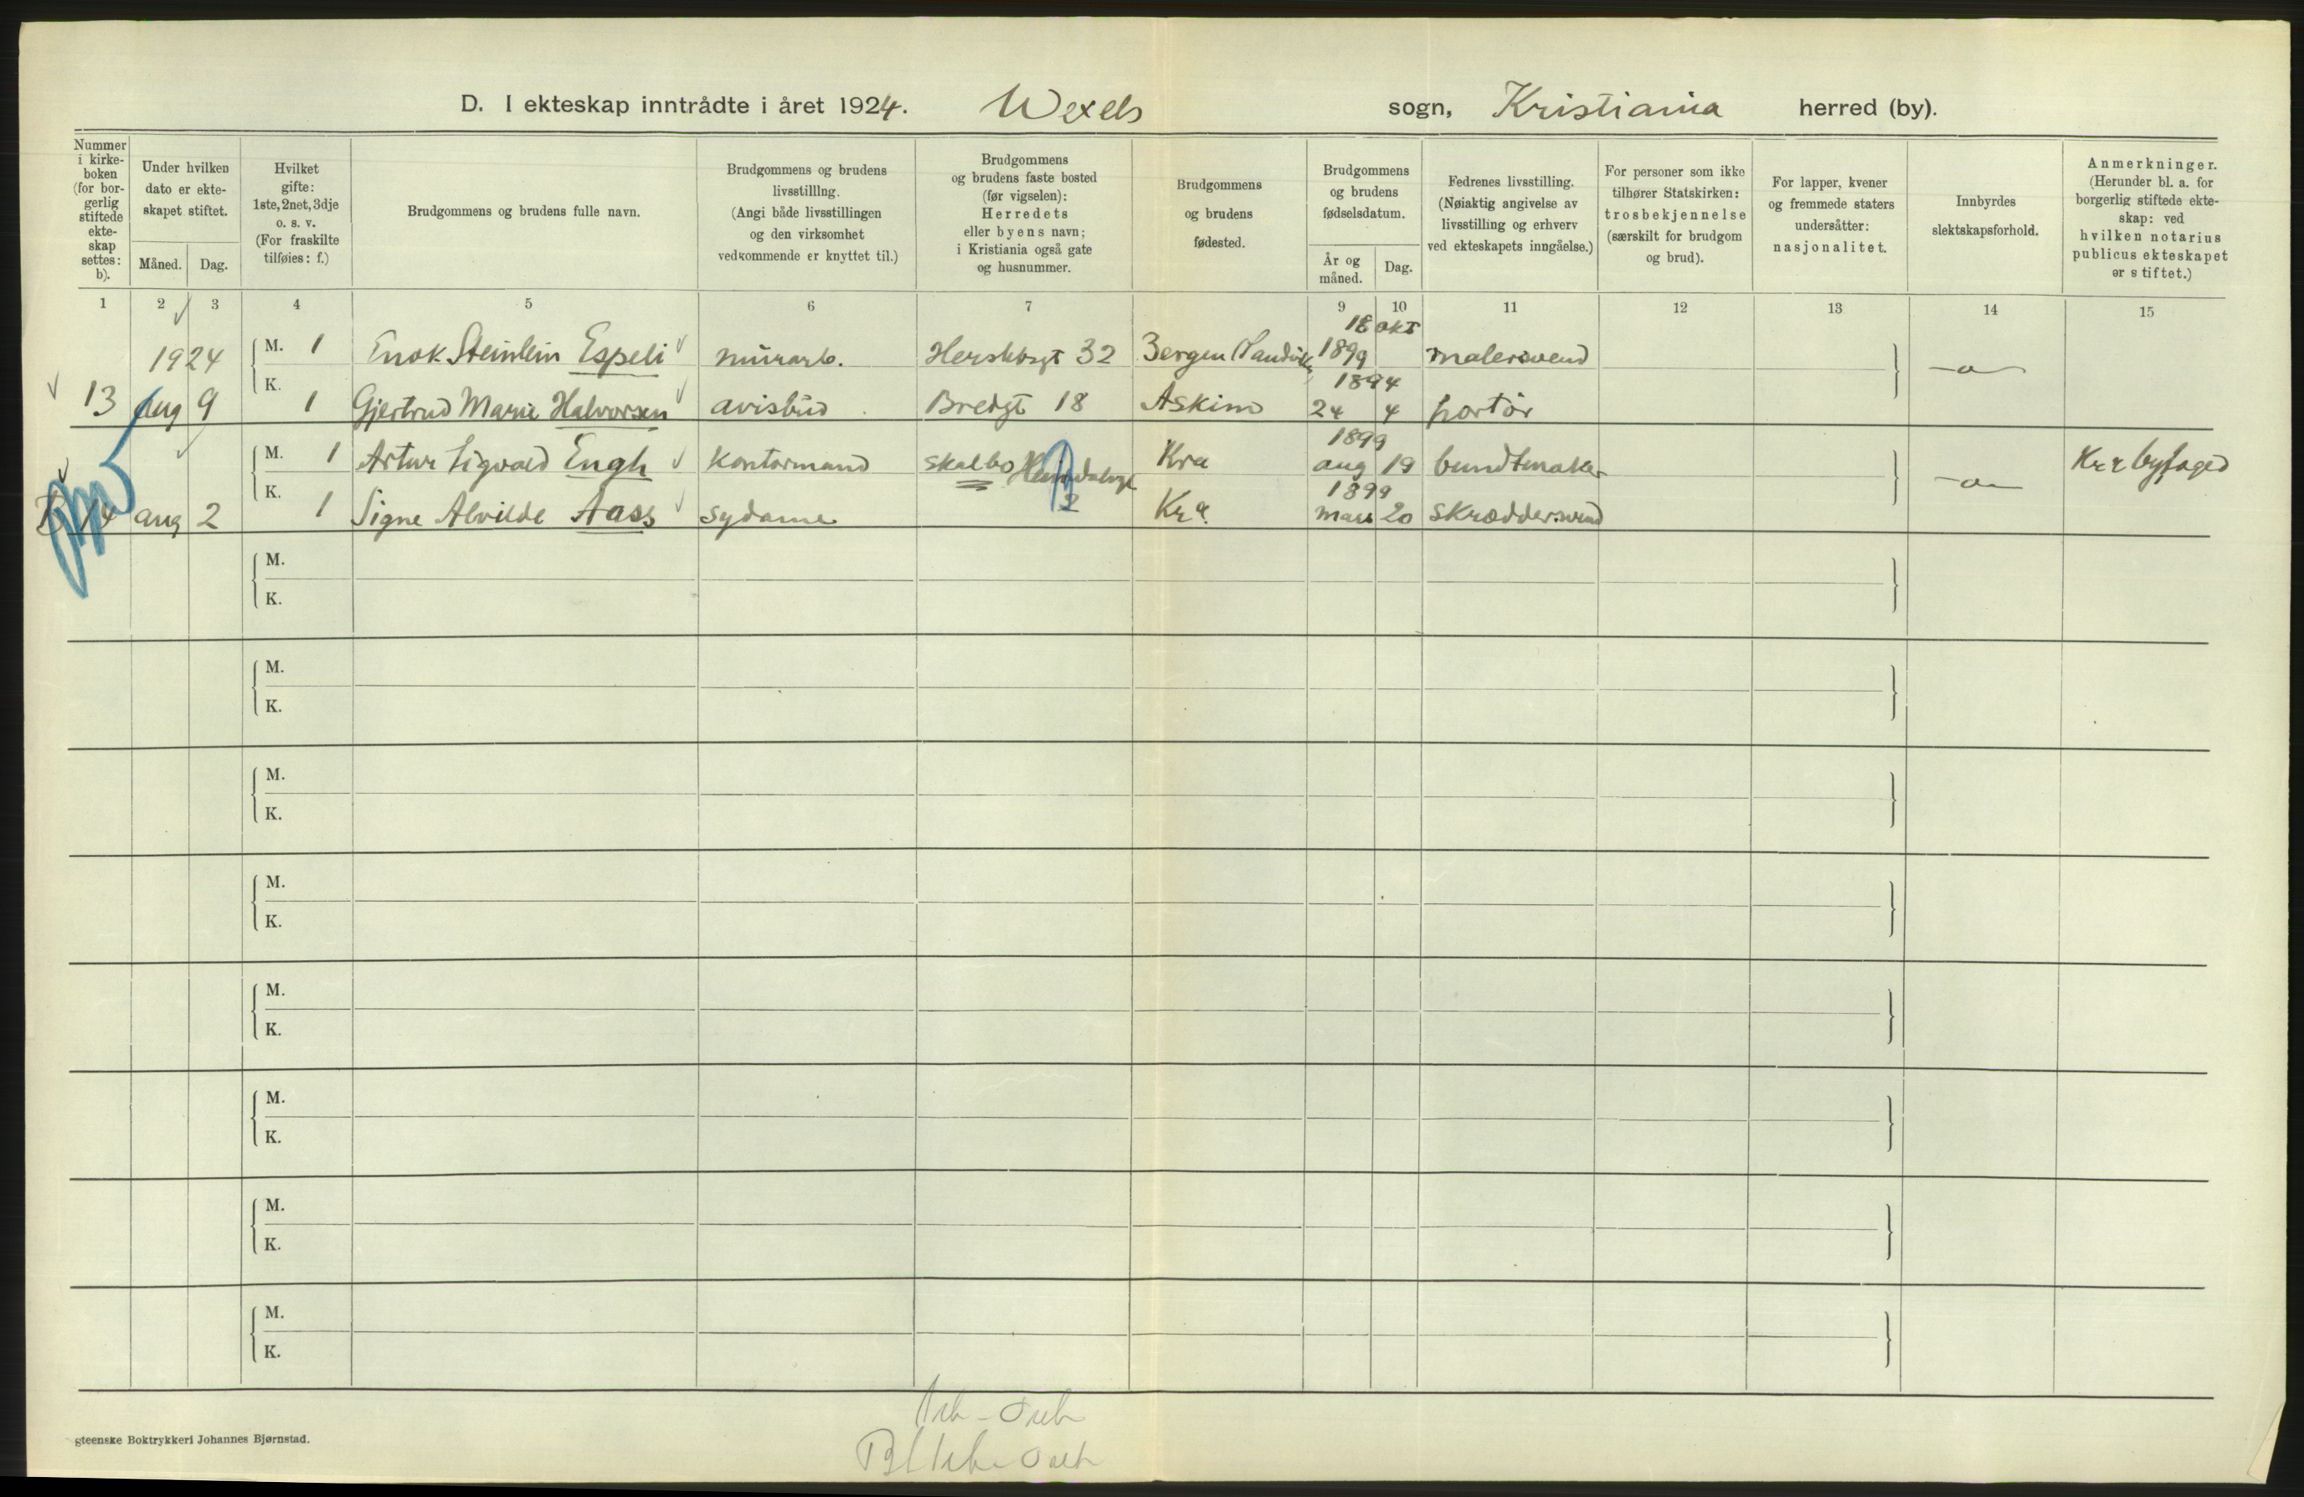 D. I ekteskap inntrådte i året 1924. Wexels sogn, Kristiania herred (by).
Nummer i kirke-boken (for bor-gerlig stiftede ekte-skap settes: b).
Under hvilken dato er ekte-skapet stiftet.
Måned. Dag.
Hvilket gifte: 1ste, 2net, 3dje o. s. v. (For fraskilte tilføies: f.)
Brudgommens og brudens fulle navn.
Brudgommens og brudens livsstilllng. (Angi både livsstillingen og den virksomhet vedkommende er knyttet til.)
Brudgommens og brudens faste bosted (før vigselen): Herredets eller byens navn; i Kristiania også gate og husnummer.
Brudgommens og brudens fødested.
Brudgommens og brudens fødselsdatum.
År og måned. Dag.
Fedrenes livsstilling. (Nøiaktig angivelse av livsstilling og erhverv ved ekteskapets inngåelse.)
For personer som ikke tilhører Statskirken: trosbekjennelse (særskilt for brudgom og brud).
For lapper, kvener og fremmede staters undersåtter: nasjonalitet.
Innbyrdes slektskapsforhold.
Anmerkninger. (Herunder bl. a. for borgerlig stiftede ekte-skap: ved hvilken notarius publicus ekteskapet er stiftet.)
1 2 3 4 5 6 7 9 10 11 12 13 14 15
18 okt
1924 M. 1 Enok Steinlein Espeli murarb. 32 Bergen 1899 malersvend
K.
1894
13 aug 9 1 Gjertrud Marie Halvorsen avisbud Bredgt 18 Askim 24 4 portør
1899
M. 1 Artur Sigvald Engh kontormand Kra aug 19 bundtmaker Kra byfoged
K.
1899
14 aug 2 1 Signe Alvilde Aass sydame 2 Kra mars 20 skræddersvend
M.
K.
M.
K.
M.
K.
M.
K.
M.
K.
M.
K.
M.
K.
M.
K.
gteenske Boktrykkeri Johannes Bjørnstad.